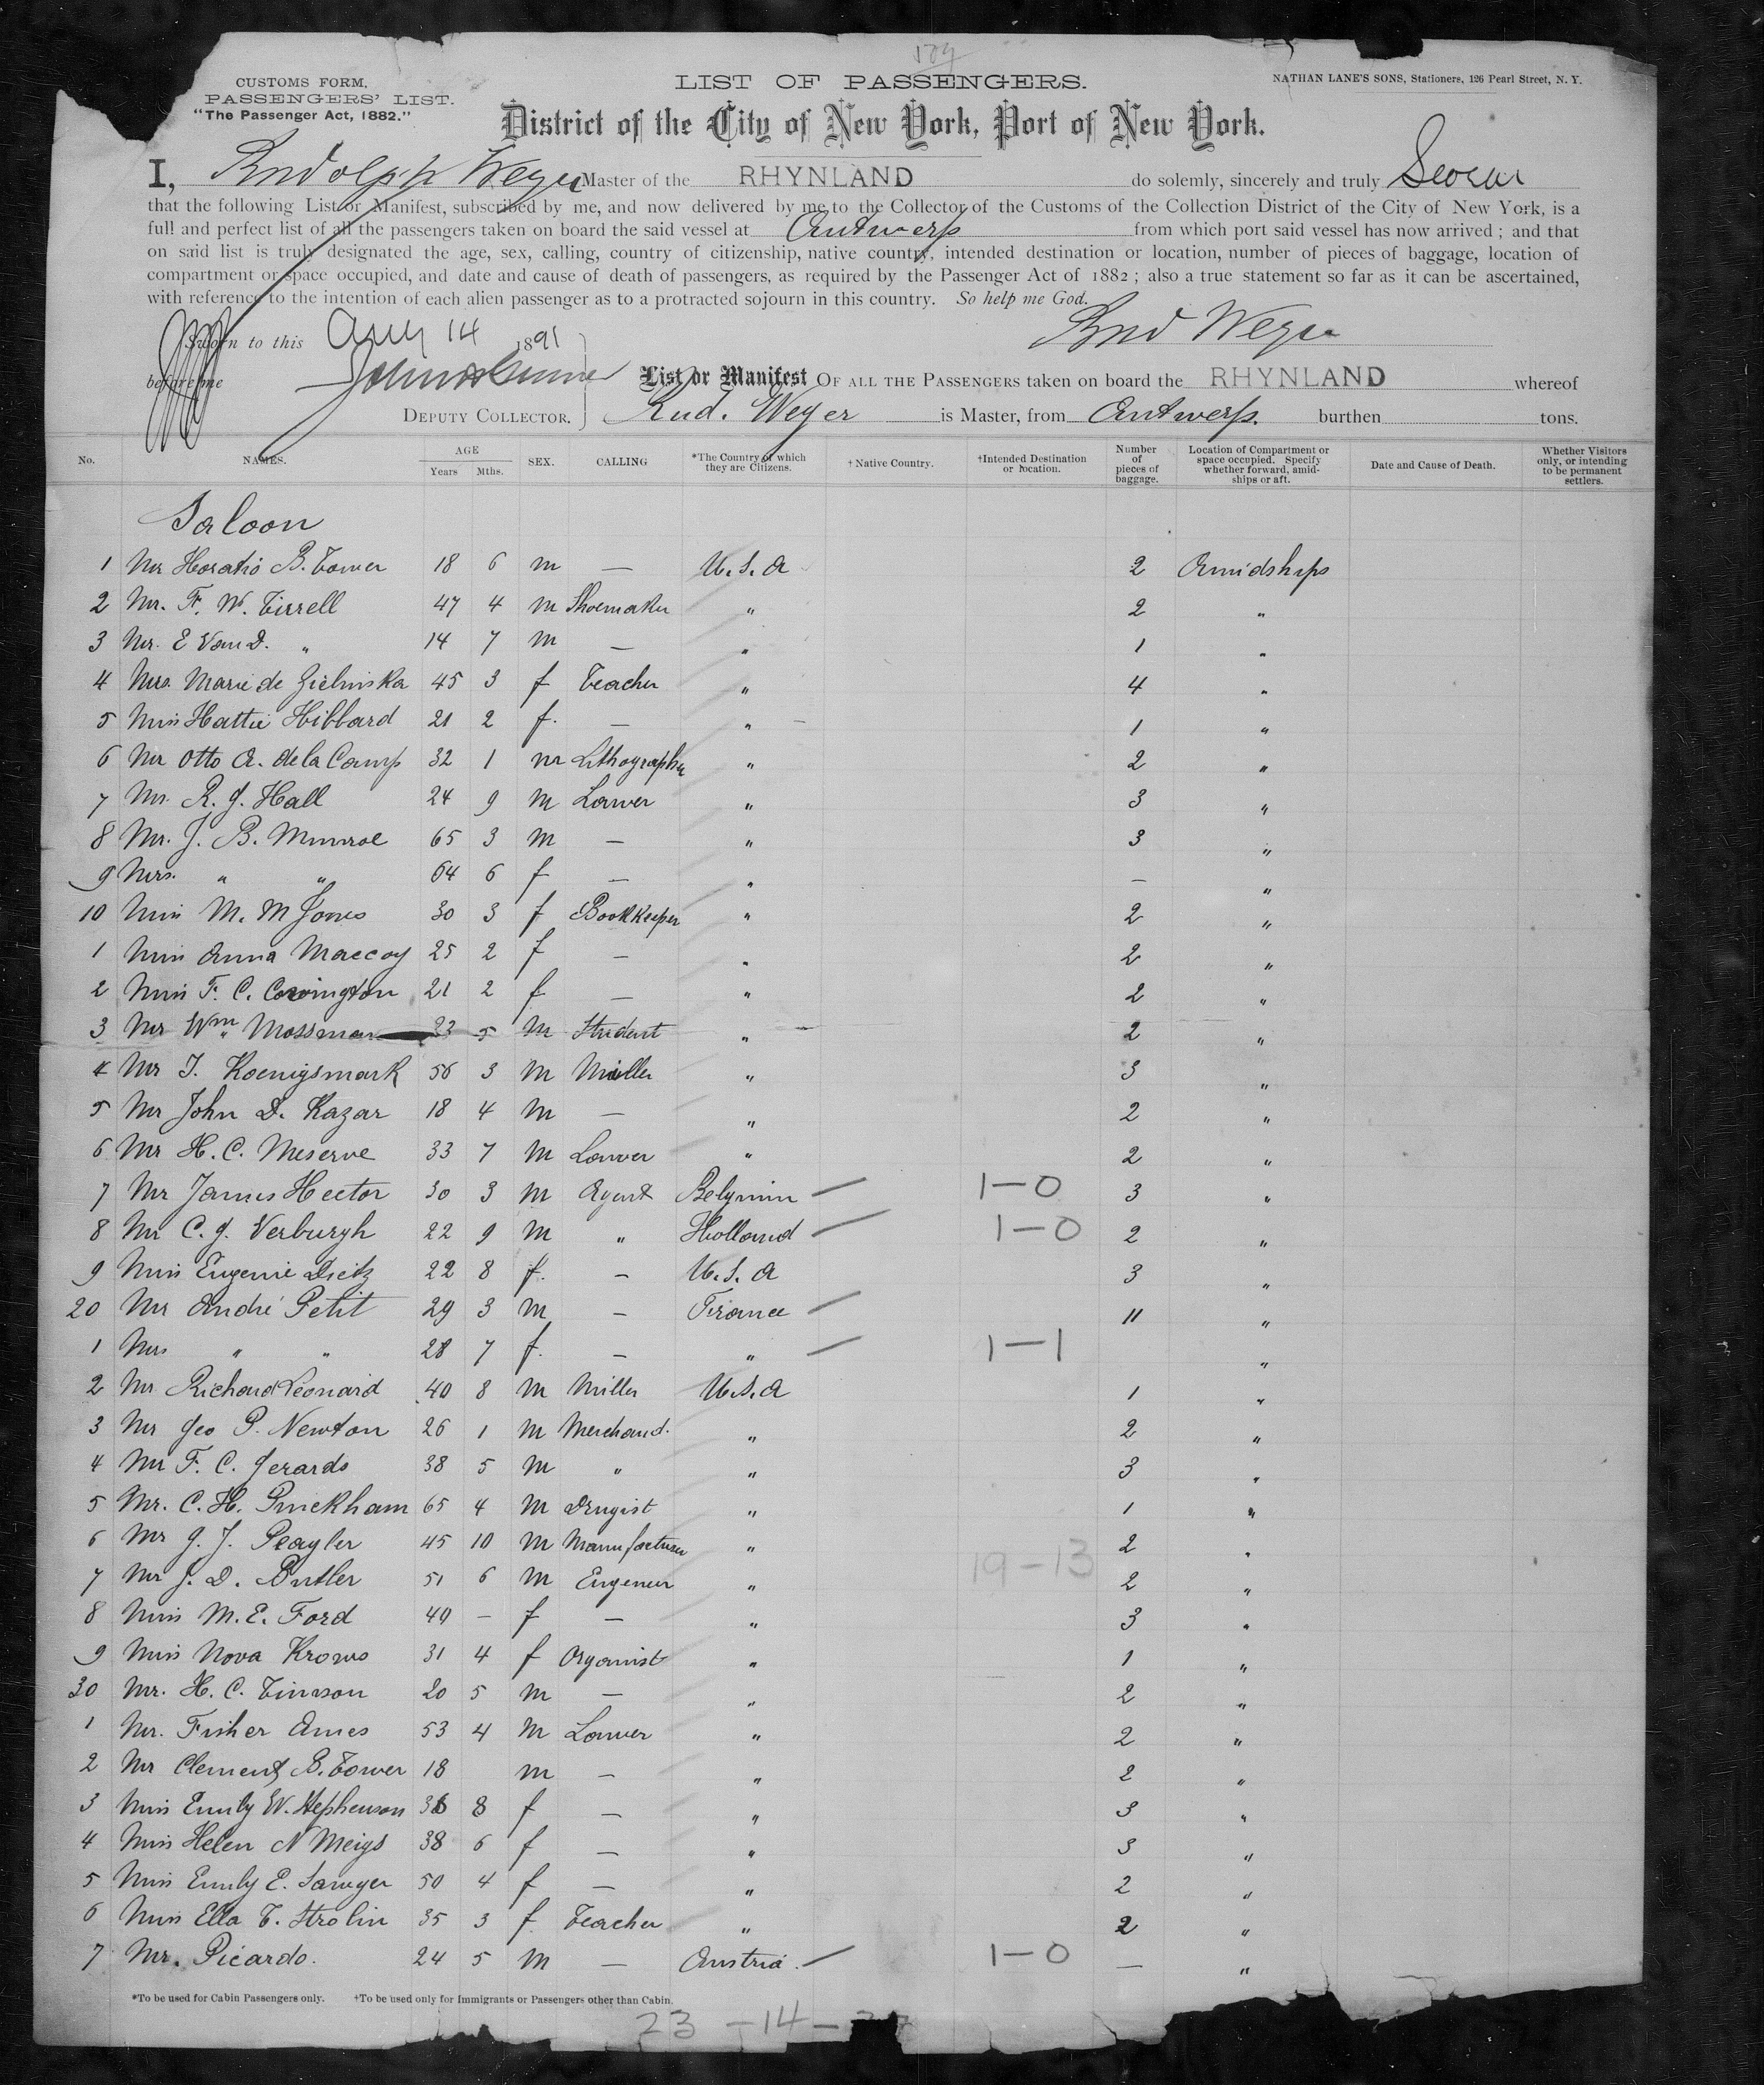 109
CUSTOMS FORM,
PASSENGERS' LIST.
"The Passenger Act, 1882."
LIST OF PASSENGERS.
NATHAN LANE'S SONS, Stationers, 126 Pearl Street, N. Y.
District of the City of New York, Port of New York.
I, Rudolph Weyer Master of the RHYNLAND do solemnly, sincerely and truly Swear
that the following List or Manifest, subscribed by me, and now delivered by me to the Collector of the Customs of the Collection District of the City of New York, is a
full and perfect list of all the passengers taken on board the said vessel at Antwerp from which port said vessel has now arrived; and that
on said list is truly designated the age, sex, calling, country of citizenship, native country, intended destination or location, number of pieces of baggage, location of
compartment or space occupied, and date and cause of death of passengers, as required by the Passenger Act of 1882; also a true statement so far as it can be ascertained,
with reference to the intention of each alien passenger as to a protracted sojourn in this country. So help me God.
Sworn to this Aug 14 1891 Rud Weyer
before me
List or Manifest OF ALL THE PASSENGERS taken on board the RHYNLAND whereof
DEPUTY COLLECTOR. Rud. Weyer is Master, from Antwerp. burthen tons.
No. NAMES. AGE Years Mths. SEX. CALLING *The Country of which they are Citizens. †Native Country. †Intended Destination or location. Number of pieces of baggage. Location of Compartment or space occupied. Specify whether forward, amidships or aft. Date and Cause of Death. Whether Visitors only, or intending to be permanent settlers.
Saloon
1 Mr Horatio B. Tower 18 6 m — U.S.A 2 Amidships
2 Mr. F. W. Tirrell 47 4 m Shoemaker " 2 "
3 Mr. E Van D. " 14 7 m — " 1 "
4 Mrs. Marie de Zielinska 45 3 f Teacher " 4 "
5 Miss Hattie Hibbard 21 2 f. — " – 1 "
6 Mr Otto A. de la Camp 32 1 m Lithographer " 2 "
7 Mr. R. J. Hall 24 9 m Lawer " 3 "
8 Mr. J. B. Munroe 65 3 m — " 3 "
9 Mrs. " " 64 6 f — " — "
10 Miss M. M Jones 30 3 f Bookkeeper " 2 "
1 Miss Anna Maccoy 25 2 f — " 2 "
2 Miss F. C. Covington 21 2 f — " 2 "
3 Mr Wm Mossman 23 5 m Student " — 2 "
4 Mr J. Koenigsmark 56 3 m Miller " 3 "
5 Mr John D. Kazar 18 4 m — " 2 "
6 Mr H. C. Meserve 33 7 m Lawer " 2 "
7 Mr James Hector 30 3 m Agent Belgium — 1—0 3 "
8 Mr C. J. Verburgh 22 9 m " Holland — 1—0 2 "
9 Miss Eugenie Dietz 22 8 f. — U.S.A 3 "
20 Mr André Petit 29 3 m — France — 11 "
1 Mrs " " 28 7 f. — " — 1—1 "
2 Mr Richard Leonard 40 8 m Miller U.S.A 1 "
3 Mr Geo P. Newton 26 1 m Merchand. " 2 "
4 Mr F. C. Gerards 38 5 m " " 3 "
5 Mr. C. H. Pinckham 65 4 m Drugist " 1 "
6 Mr G. J. Peayler 45 10 m Manufacturer " 2 "
7 Mr J. D. Butler 51 6 m Engeneur " 19–13 2 "
8 Miss M. E. Ford 49 – f — " 3 "
9 Miss Nova Krows 31 4 f Organist " 1 "
30 Mr. H. C. Timson 20 5 m — " 2 "
1 Mr. Fisher Ames 53 4 m Lawer " 2 "
2 Mr Clement B. Tower 18 m — " 2 "
3 Miss Emily W. Stephenson 36 8 f — " 3 "
4 Miss Helen N Meigs 38 6 f — " 3 "
5 Miss Emily E. Sawyer 50 4 f — " 2 "
6 Miss Ella T. Strolin 35 3 f Teacher " 2 "
7 Mr. Picardo. 24 5 m — Austria. — 1—0 — "
*To be used for Cabin Passengers only. †To be used only for Immigrants or Passengers other than Cabin.
23 – 14 –